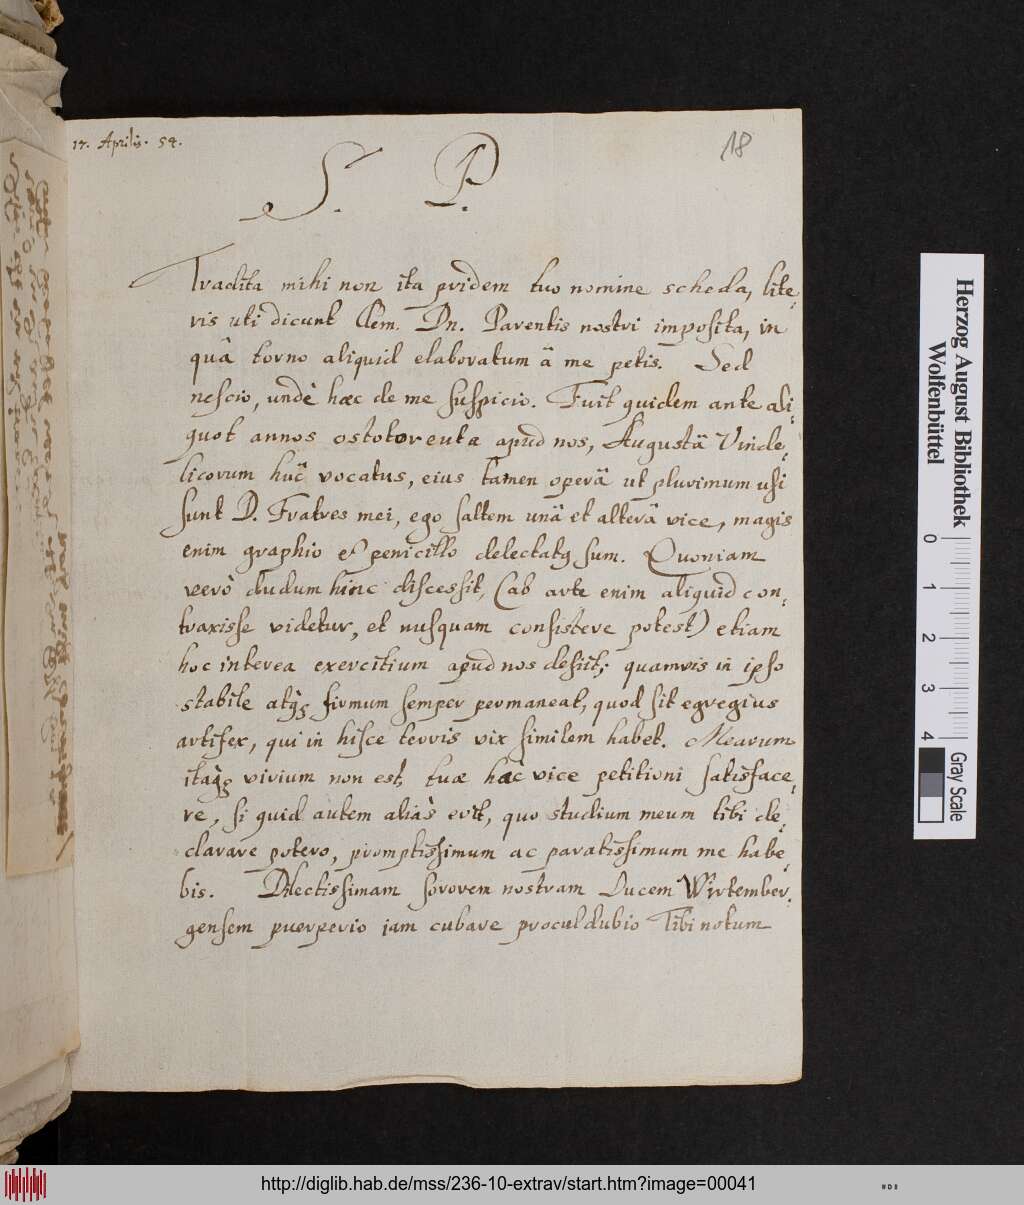 17. Aprilis. 54.
18
S. P.
Tradita mihi non ita pridem tuo nomine scheda, lite-
ris uti dicunt Clem. Dn. Parentis nostri imposita, in
quâ torno aliquid elaboratum â me petis. Sed
nescio, undè hæc de me suspicio. Fuit quidem ante ali-
quot annos ostotoreuta apud nos, Augustâ Vinde-
licorum huc vocatus, eius tamen operâ ut plurimum usi
sunt D. Fratres mei, ego saltem unâ et alterâ vice, magis
enim graphio et penicillo delectatq sum. Quoniam
verò dudum hinc discessit, (ab arte enim aliquid con-
traxisse videtur, et nusquam consistere potest) etiam
hoc interea exercitium apud nos desiit; quamvis in ipso
stabile atq; firmum semper permaneat, quod sit egregius
artifex, qui in hisce terris vix similem habet. Mearum
itaq; virium non est, tuæ hâc vice petitioni satisface-
re, si quid autem aliàs erit, quo studium meum tibi de-
clarare potero, promptissimum ac paratissimum me habe-
bis. Dilectissimam sororem nostram Ducem Wirtember-
gensem puerperio jam cubare proculdubio Tibi notum
Herzog August Bibliothek
Wolfenbüttel
0 1 2 3 4
Gray Scale
http://diglib.hab.de/mss/236-10-extrav/start.htm?image=00041